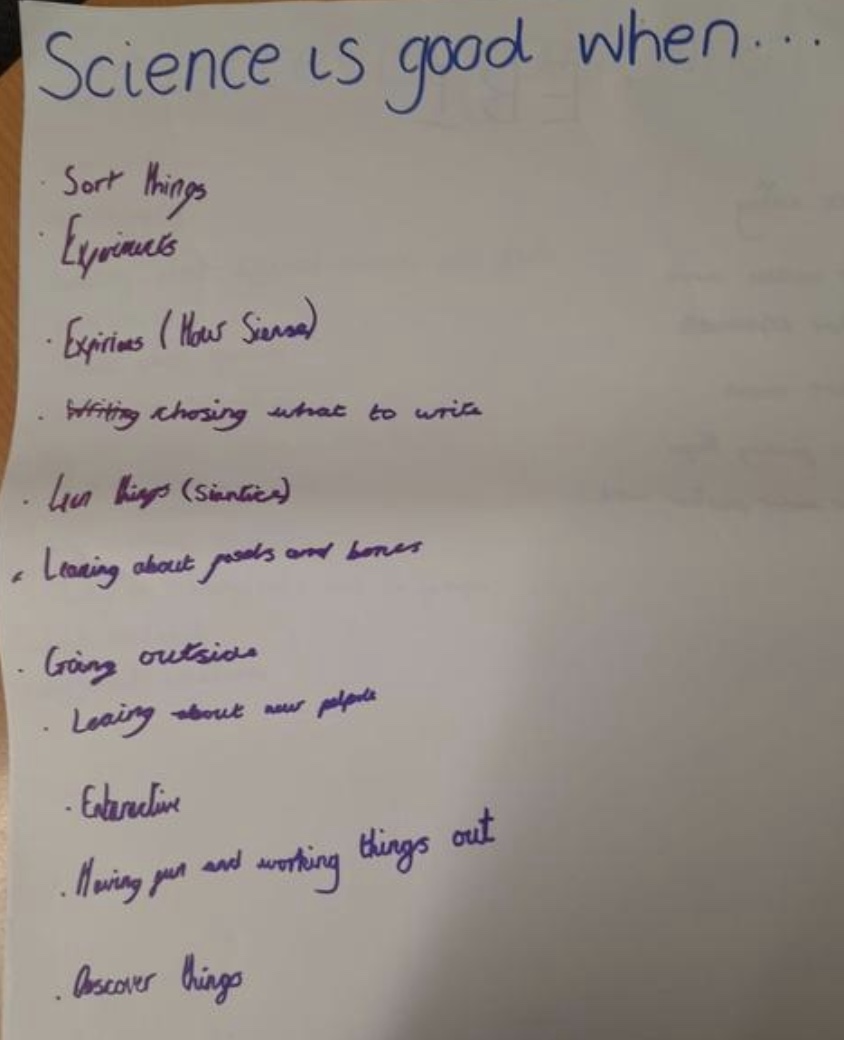 Science is good when...
· Sort things
· Expriments
· Expiriens (How Siense)
· Writing chosing what to write
· Lern things (Siantics)
· Learing about fosals and bones
· Going outside
· Leaing about new
· Enteractive
· Having fun and working things out
· Discover things